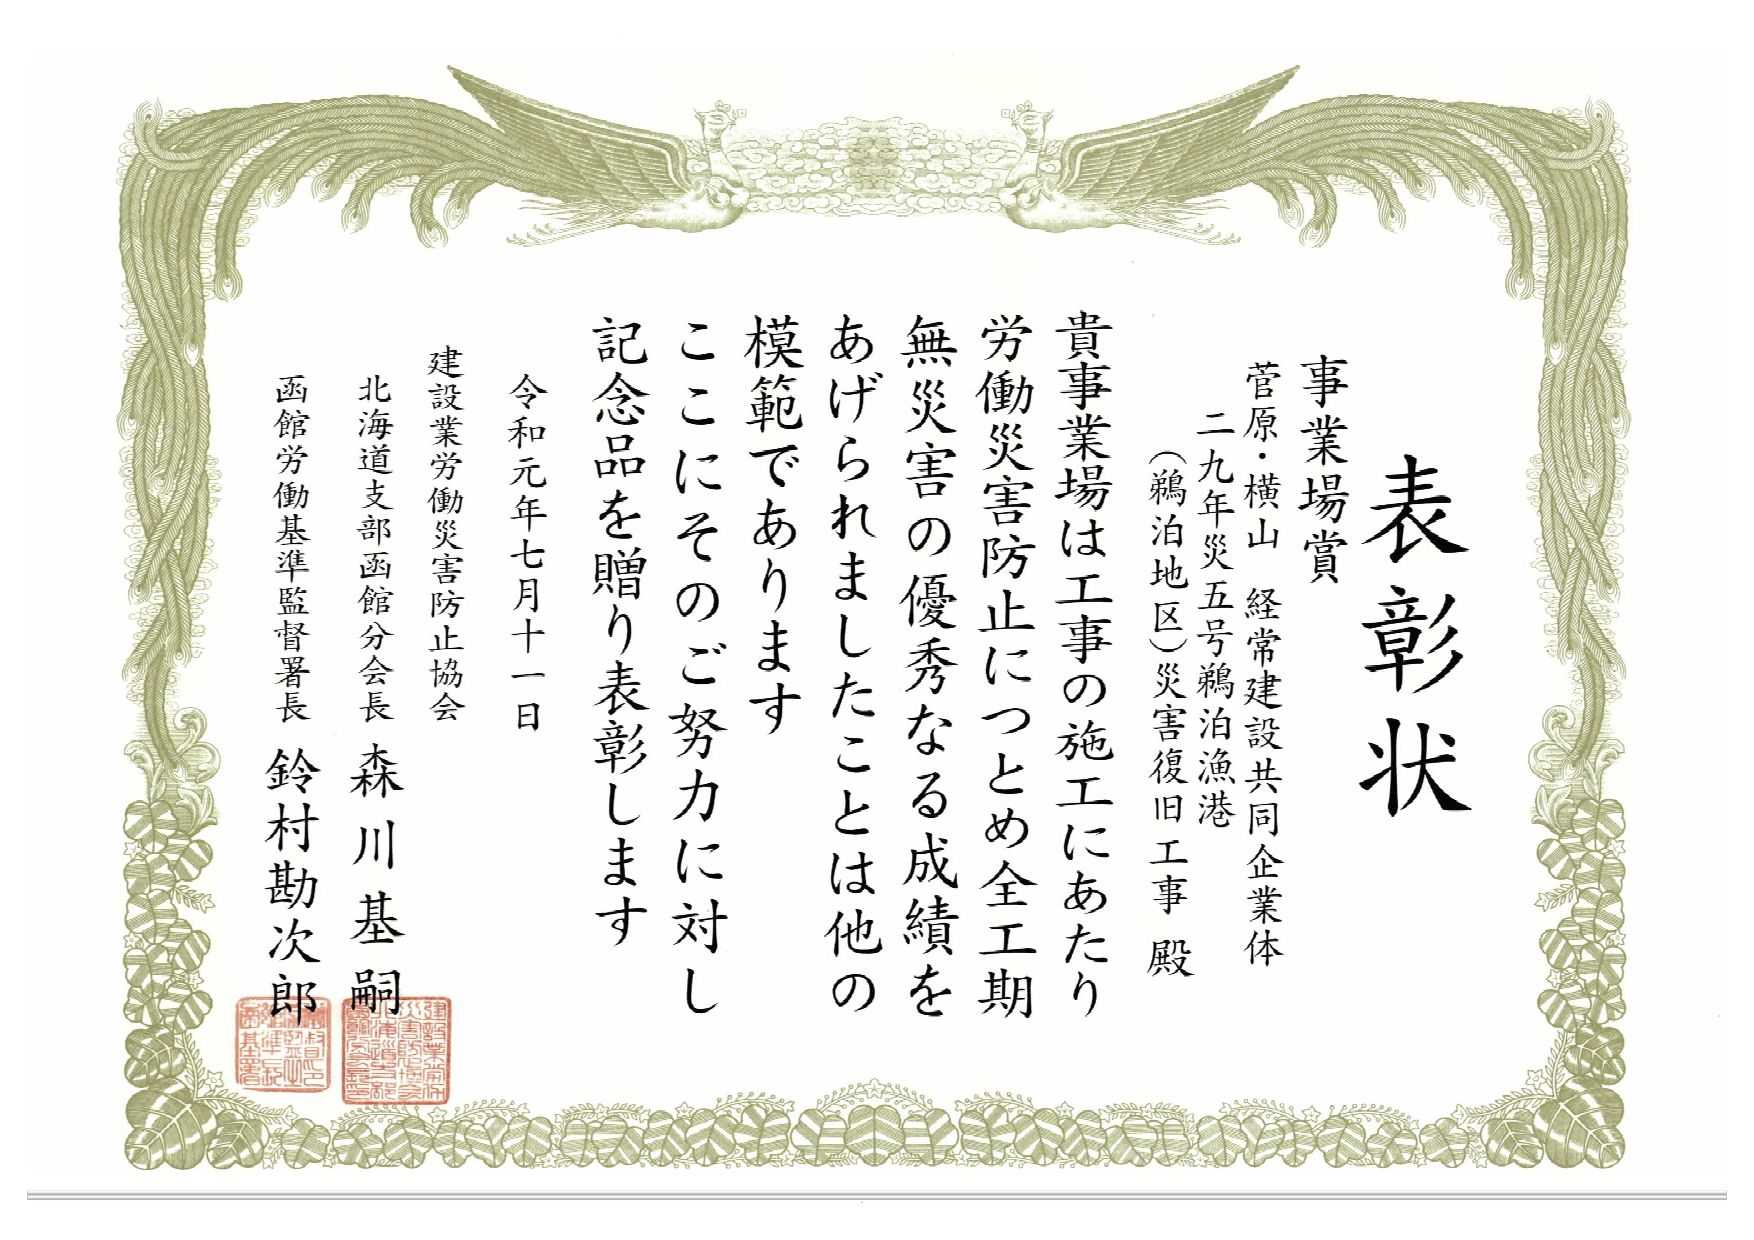 表彰状
事業場賞
菅原・横山 経常建設共同企業体
二九年災五号鵜泊漁港
（鵜泊地区）災害復旧工事 殿
貴事業場は工事の施工にあたり
労働災害防止につとめ全工期
無災害の優秀なる成績を
あげられましたことは他の
模範であります
ここにそのご努力に対し
記念品を贈り表彰します
令和元年七月十一日
建設業労働災害防止協会
北海道支部函館分会長 森川基嗣
函館労働基準監督署長 鈴村勘次郎